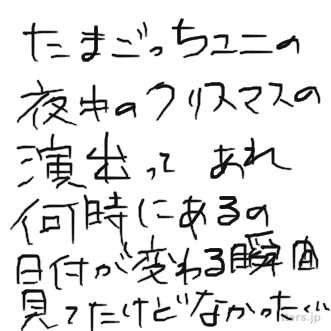 たまごっちユニの
夜中のクリスマスの
演出って あれ
何時にあるの
日付が変わる瞬間
見てたけどなかったぐ